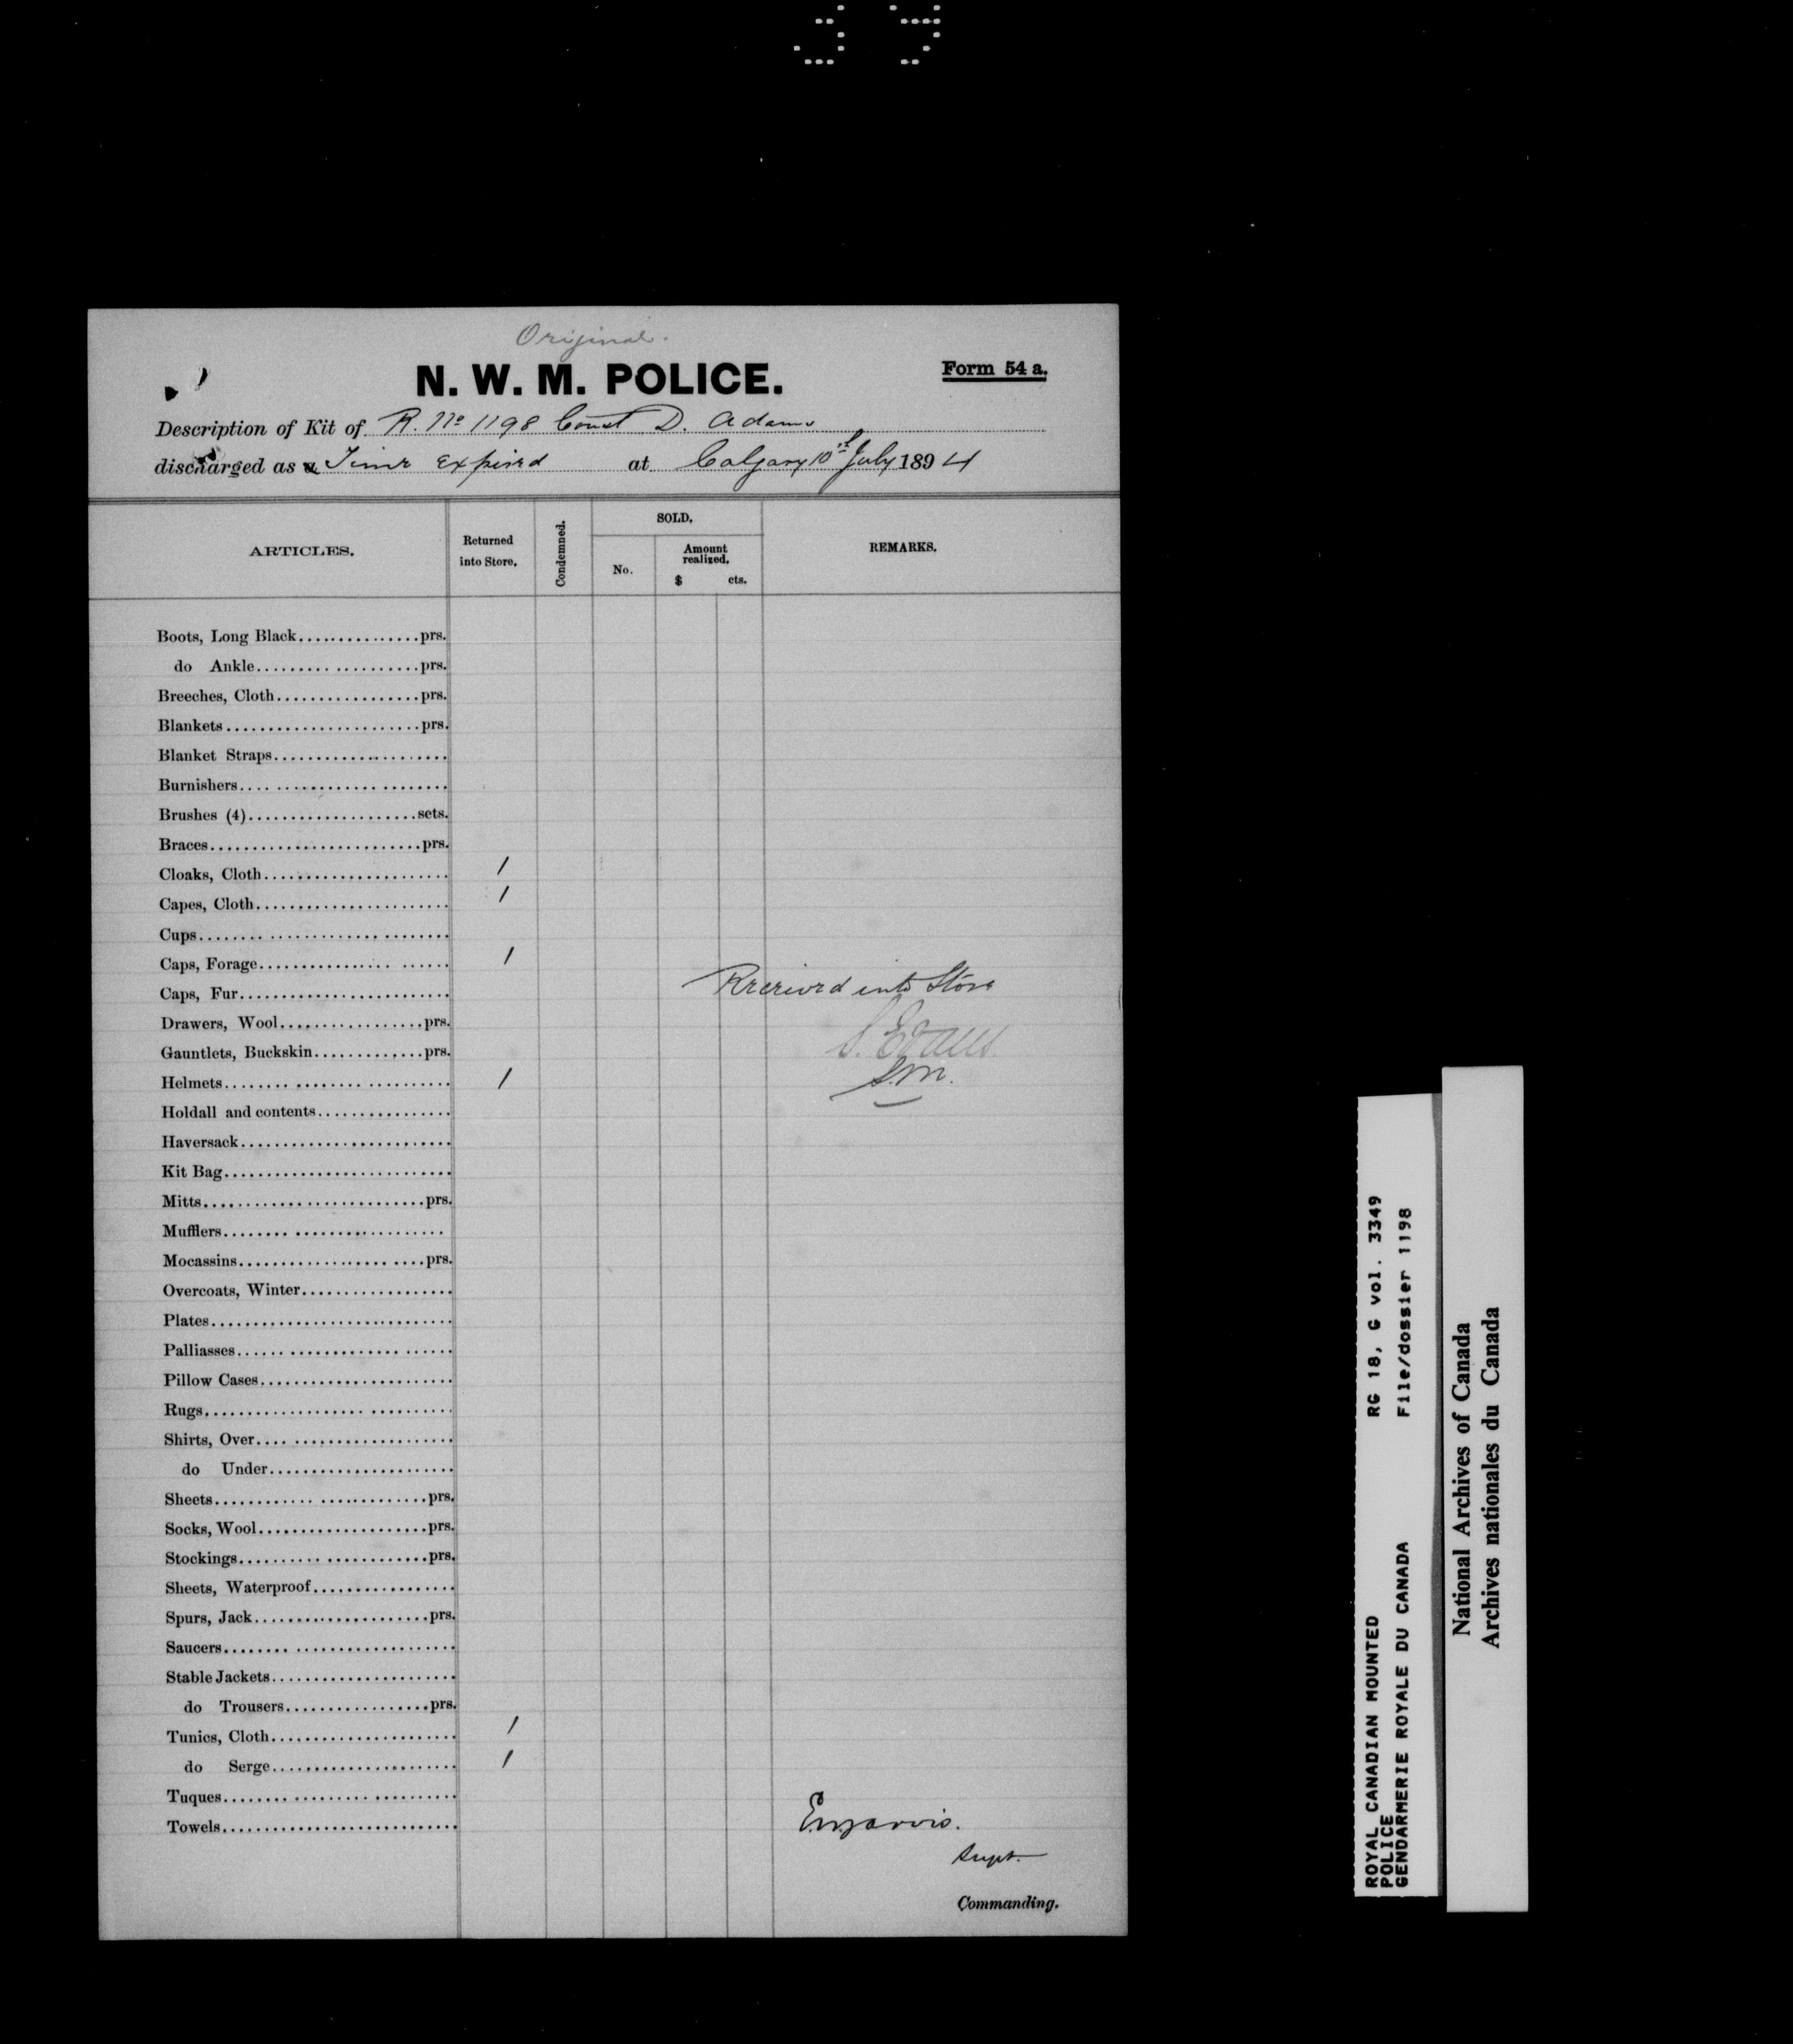 Original.
N. W. M. POLICE.
Form 54 a.
Description of Kit of R. No 1198 Const D. Adams
discharged as a Time Expired at Calgary 10th July 1894
ARTICLES.
Returned into Store.
Condemned.
SOLD.
No.
Amount realized.
$ cts.
REMARKS.
Boots, Long Black prs.
do Ankle prs.
Breeches, Cloth prs.
Blankets prs.
Blanket Straps
Burnishers
Brushes (4) sets.
Braces prs.
Cloaks, Cloth 1
Capes, Cloth 1
Cups
Caps, Forage 1
Caps, Fur
Received into Store
Drawers, Wool prs.
S. Evans
Gauntlets, Buckskin prs.
Helmets 1
S.M.
Holdall and contents
Haversack
Kit Bag
Mitts prs.
Mufflers
Mocassins prs.
Overcoats, Winter
Plates
Palliasses
Pillow Cases
Rugs
Shirts, Over
do Under
Sheets prs.
Socks, Wool prs.
Stockings prs.
Sheets, Waterproof
Spurs, Jack prs.
Saucers
Stable Jackets
do Trousers prs.
Tunics, Cloth 1
do Serge 1
Tuques
Towels
Supt.
Commanding.
ROYAL CANADIAN MOUNTED
POLICE
GENDARMERIE ROYALE DU CANADA
RG 18, G vol. 3349
File/dossier 1198
National Archives of Canada
Archives nationales du Canada